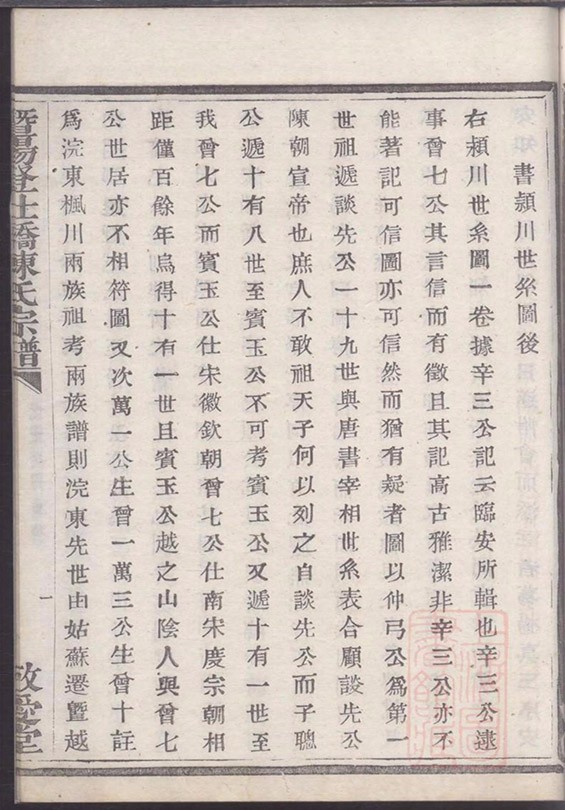 書潁川世系圖後
右潁川世系圖一卷據辛三公記云臨安所輯也辛三公逮
事曾七公其言信而有徵且其記高古雅潔非辛三公亦不
能著記可信圖亦可信然而猶有疑者圖以仲弓公爲第一
世祖遞談先公一十九世與唐書宰相世系表合顧談先公
陳朝宣帝也庶人不敢祖天子何以列之自談先公而子聰
公遞十有八世至賓玉公不可考賓玉公又遞十有一世至
我曾七公而賓玉公仕宋徽欽朝曾七公仕南宋慶宗朝相
距僅百餘年烏得十有一世且賓玉公越之山陰人與曾七
公世居亦不相符圖又次萬一公生曾一萬三公生曾十註
爲浣東楓川兩族祖考兩族譜則浣東先世由姑蘇遷暨越
暨陽登仕橋陳氏宗譜
一
敦愛堂